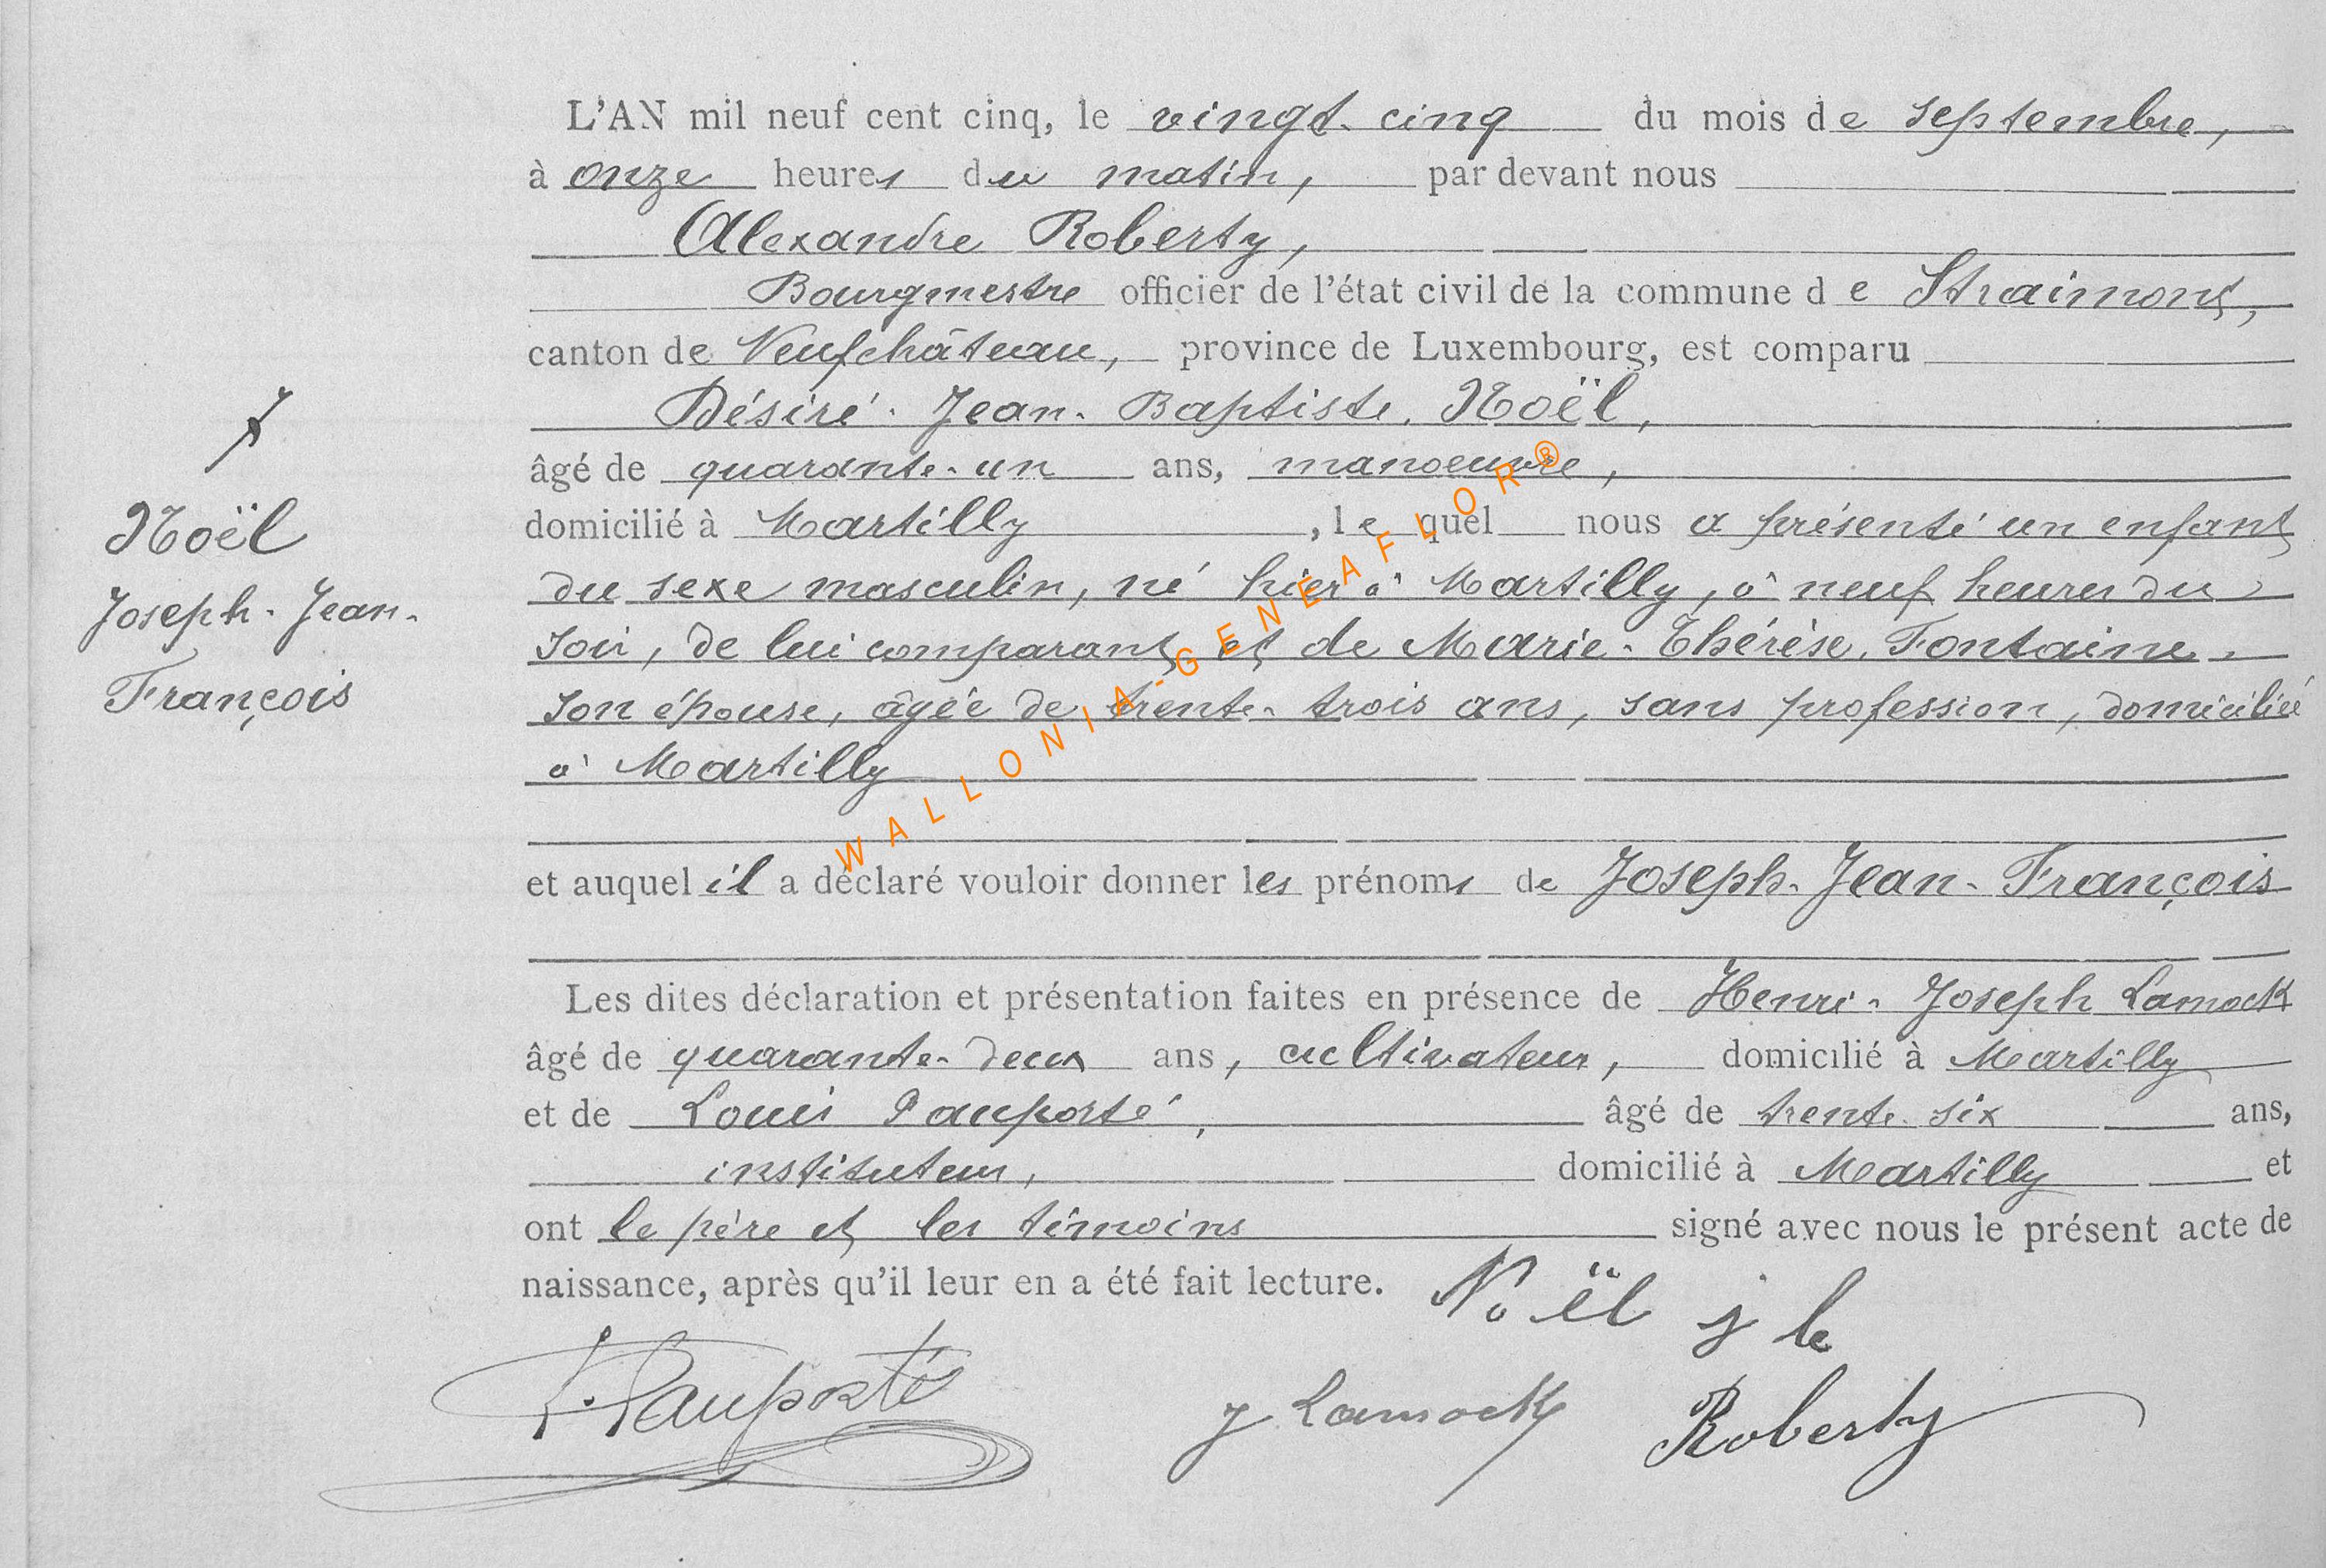 L'AN mil neuf cent cinq, le vingt-cinq du mois de septembre,
à onze heures du matin, par devant nous
Alexandre Roberty,
Bourgmestre officier de l'état civil de la commune de Straimont,
canton de Neufchâteau, province de Luxembourg, est comparu
Désiré-Jean-Baptiste Noël,
âgé de quarante-un ans, manoeuvre,
domicilié à Martilly, lequel nous a présenté un enfant
du sexe masculin, né hier à Martilly, à neuf heures du
soir, de lui comparant et de Marie-Thérèse Fontaine
son épouse, âgée de trente-trois ans, sans profession, domiciliée
à Martilly
et auquel il a déclaré vouloir donner les prénoms de Joseph-Jean-François
Les dites déclaration et présentation faites en présence de Henri-Joseph Lamock
âgé de quarante-deux ans, cultivateur, domicilié à Martilly
et de Louis Pauporté, âgé de trente-six ans,
instituteur, domicilié à Martilly et
ont le père et les témoins signé avec nous le présent acte de
naissance, après qu'il leur en a été fait lecture.
Noël
Joseph-Jean-
François
Noël j b
L. Pauporté
J Lamock
Roberty
WALLONIA-GENEAFLOR®